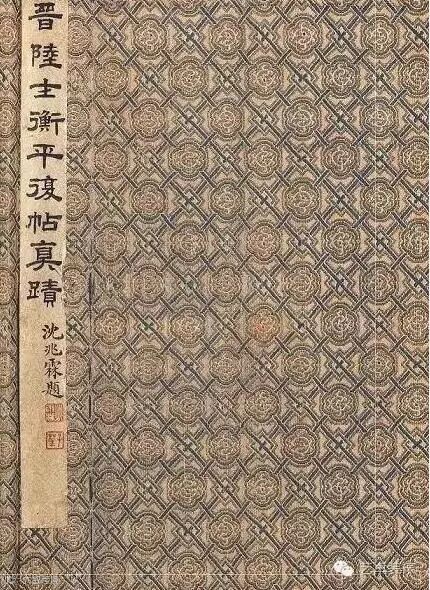 晋陸士衡平復帖真蹟
沈兆霖題